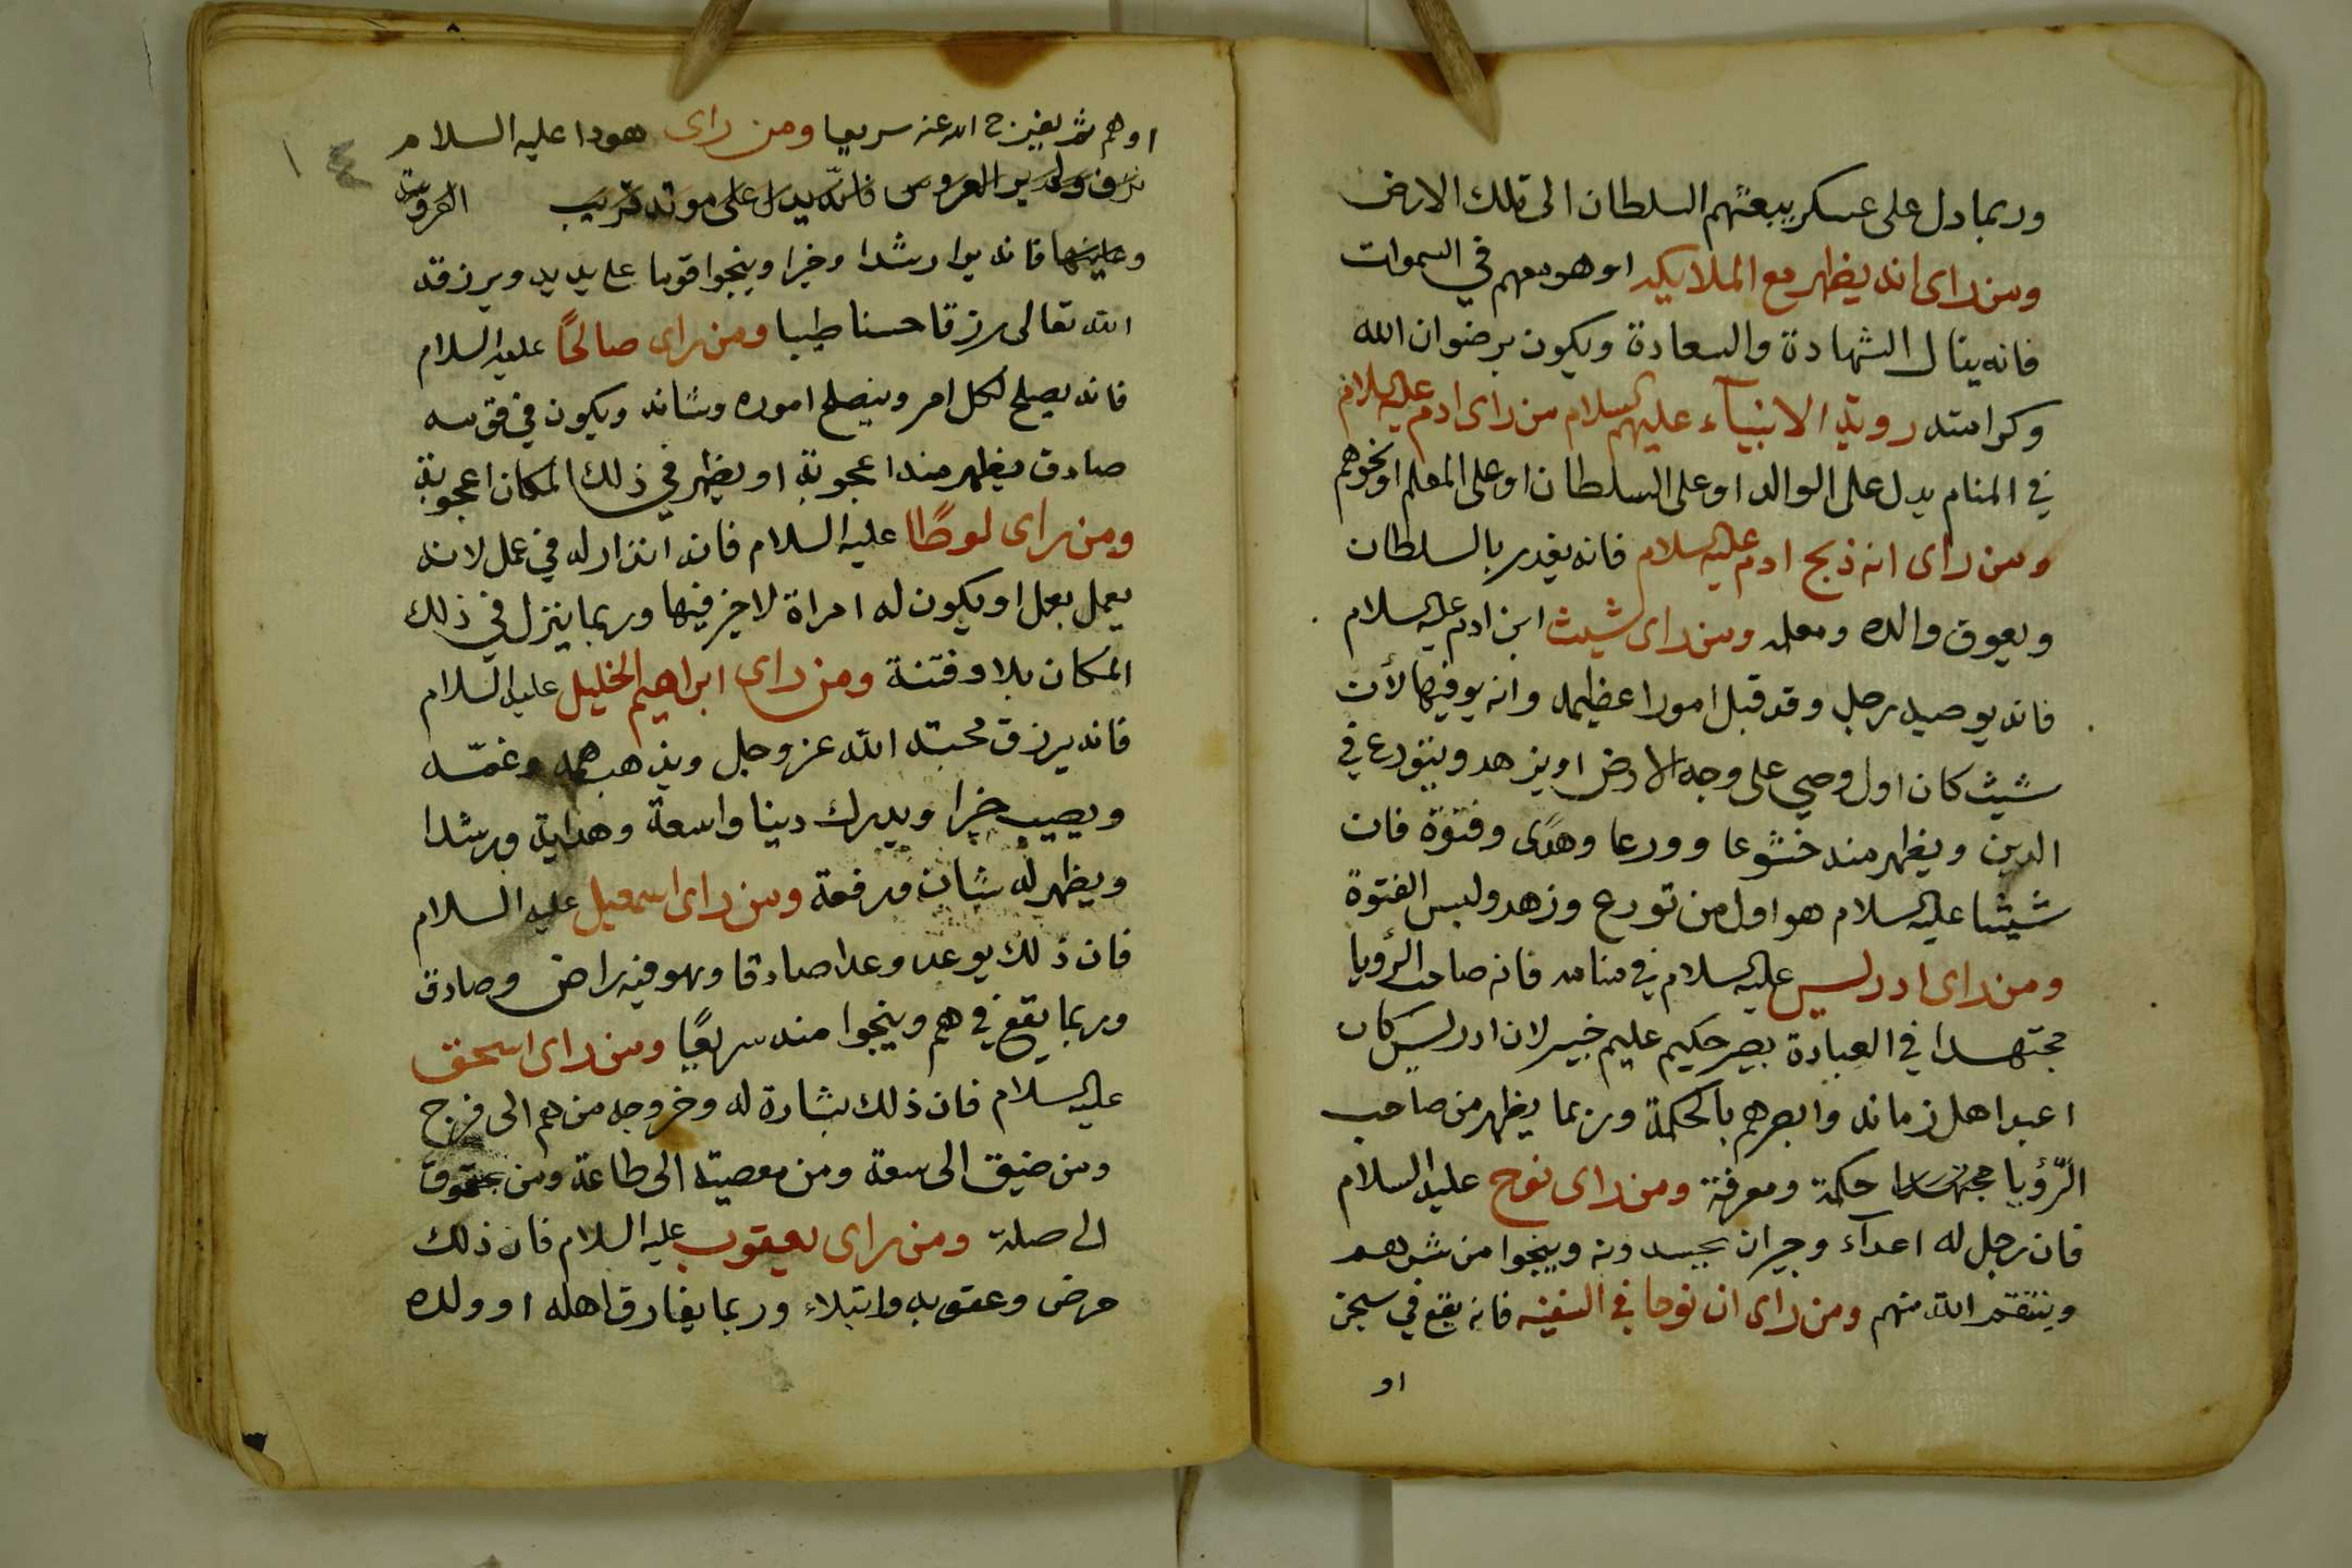 وربما دل على عسكر يبعثهم السلطان الى تلك الارض
ومن راى انه يظهر مع الملايكه او هو معهم في السموات
فانه ينال الشهادة والسعادة ويكون برضوان الله
وكرامته روية الانبيآء عليهم السلام من راى ادم عليه السلام
في المنام يدل على الوالد او على السلطان او على المعلم او نحوهم
ومن راى انه ذبح ادم عليه السلام فانه يغدر بالسلطان
ويعوق والده ومعلمه ومن راى شيث ابن ادم عليه السلام
فانه يوصيه رجل وقد قبل امورا عظيمه وانه يوفيها لأن
شيث كان اول وصي على وجه الارض او يزهد ويتورع في
الدين ويظهر منه خشوعا وورعا وهدًى وفتوّة فان
شيثا عليه السلام هو اول من تورع وزهد ولبس الفتوة
ومن راى ادريس عليه السلام في منامه فانه صاحب الرؤيا
مجتهدا في العبادة بصير حكيم عليم خبير لان ادريس كان
اعبد اهل زمانه وابصرهم بالحكمة وربما يظهر من صاحب
الرّؤيا مجتهدا حكمة ومعرفة ومن راى نوح عليه السلام
فان رجل له اعدآء وجيران يحسدونه وينجوا من شرهم
وينتقم الله منهم ومن راى ان نوحا في السفينه فانه يقع في سجن
او
او هم ثم يفرج الله عنه سريعا ومن راى هودا عليه السلام
العروس فانّه يدل على موته قريب العروس
وعاينها فانه يرا رشدا وخيرا وينجوا قوما على يديه ويرزقه
الله تعالى رزقا حسنا طيبا ومن راى صالحًا عليه السلام
فانه يصلح لكل امر وينصلح اموره وشانه ويكون في قومه
صادق يظهر منه اعجوبة او يظهر في ذلك المكان اعجوبة
ومن راى لوطًا عليه السلام فانه انذار له في عمل لانه
يعمل بعمل او يكون له امراة لا خير فيها وربما ينزل في ذلك
المكان بلا وفتنة ومن راى ابراهيم الخليل عليه السلام
فانه يرزق محبته الله عز وجل ويذهب همه وغمّه
ويصيب خيرا ويدرك دينا واسعة وهداية ورشدا
ويظهر له شان ورفعة ومن راى اسمعيل عليه السلام
فان ذلك يوعد وعدا صادقا وهو فيه راض وصادق
وربما يقع في هم وينجوا منه سريعًا ومن راى اسحق
عليه السلام فان ذلك بشارة له وخروجه من هم الى فرج
ومن ضيق الى سعة ومن معصيته الى طاعة ومن عقوق
الى صلة ومن راى يعقوب عليه السلام فان ذلك
مرض وعقوبه وابتلاء وربما يفارق اهله او ولده